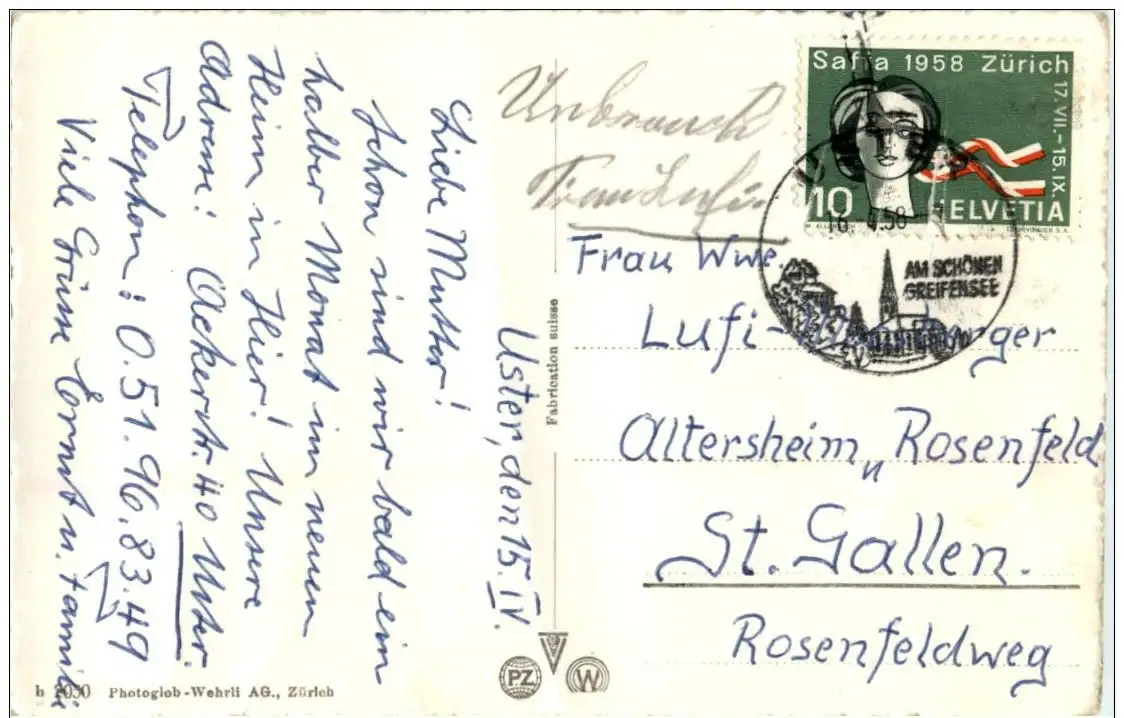 Uster, den 15. IV.
Liebe Mutter!
Schon sind wir bald ein
halber Monat im neuen
Heim in Hier! Unsere
Adresse! Ackerstr. 40 Uster.
Telephon: 0.51.96.83.49
Viele Grüsse Ernst u. Familie
h 2050 Photoglob-Wehrli AG., Zürich
Fabrication suisse
PZ
W
Saffa 1958 Zürich
17. VII. – 15. IX.
10 HELVETIA
16. 4.58
AM SCHÖNEN
GREIFENSEE
Frau Wwe.
Lufi-
Altersheim „Rosenfeld
St. Gallen.
Rosenfeldweg